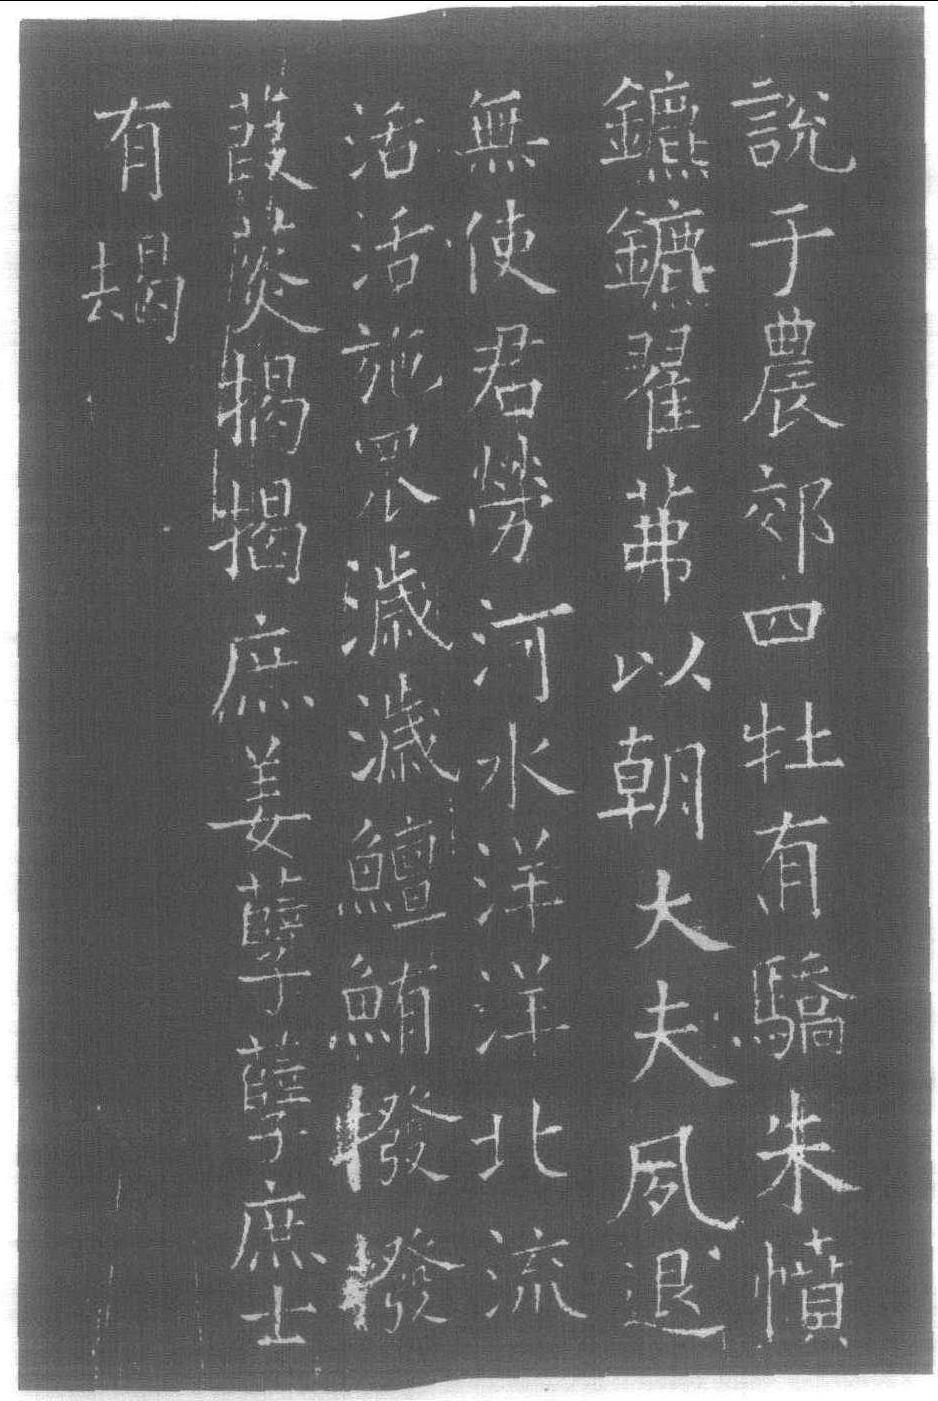 說于農郊四牡有驕朱幩
鑣鑣翟茀以朝大夫夙退
無使君勞河水洋洋北流
活活施罛濊濊鱣鮪撥撥
葭菼揭揭庶姜孽孽庶士
有朅